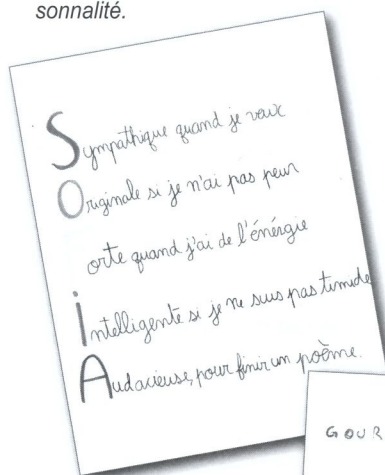 sonnalité.
Sympathique quand je veux
Originale si je n'ai pas peur
orte quand j'ai de l'énérgie
Intelligente si je ne suis pas timide
Audacieuse, pour finir un poème.
GOUR